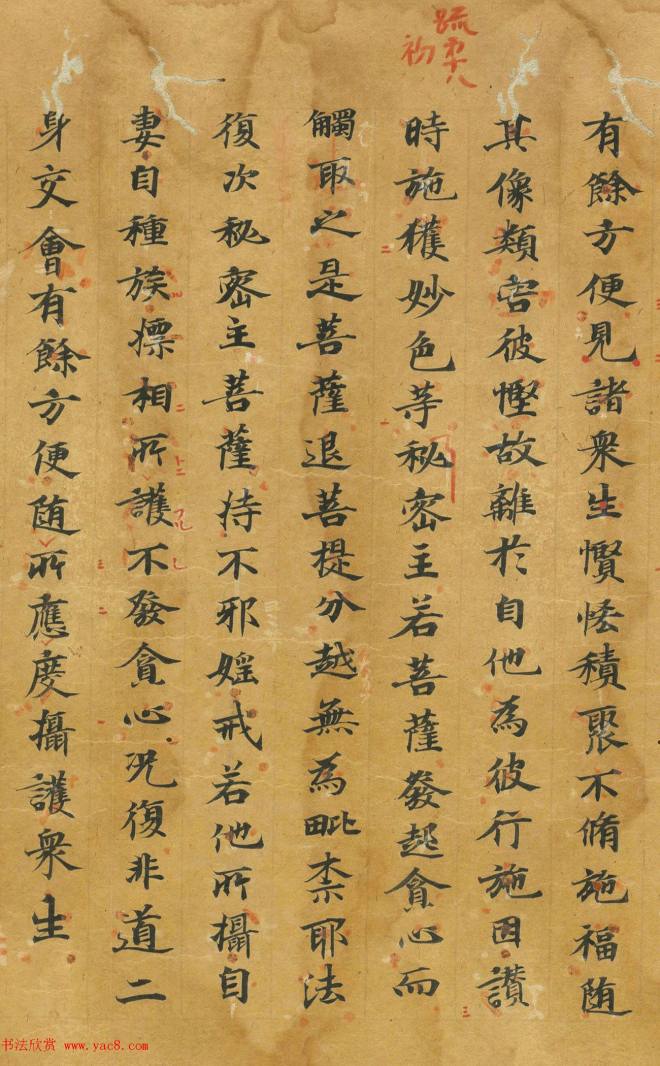 有餘方便見諸衆生慳悋積聚不脩施福随
其像類害彼慳故離於自他為彼行施因讃
時施獲妙色等秘密主若菩薩發起貪心而
觸取之是菩薩退菩提分越無為毗柰耶法
復次秘密主菩薩持不邪婬戒若他所攝自
妻自種族摽相所護不發貪心况復非道二
身交會有餘方便随所應度攝護衆生
书法欣赏 www.yac8.com